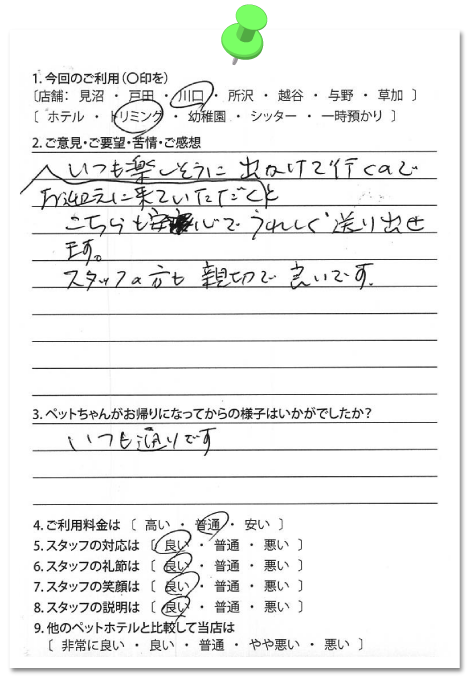 1.今回のご利用(〇印を)
〔店舗: 見沼 ・ 戸田 ・ 川口 ・ 所沢 ・ 越谷 ・ 与野 ・ 草加 〕
[ ホテル ・ トリミング ・ 幼稚園 ・ シッター ・ 一時預かり ]
2.ご意見・ご要望・苦情・ご感想
いつも楽しそうに 出かけて行くので
お迎えに来ていただくと
こちらも安心で うれしく 送り出せ
ます。
スタッフの方も 親切で 良いです。
3.ペットちゃんがお帰りになってからの様子はいかがでしたか?
いつも通りです
4.ご利用料金は 〔 高い ・ 普通 ・ 安い 〕
5.スタッフの対応は 〔 良い ・ 普通 ・ 悪い 〕
6.スタッフの礼節は 〔 良い ・ 普通 ・ 悪い 〕
7.スタッフの笑顔は 〔 良い ・ 普通 ・ 悪い 〕
8.スタッフの説明は 〔 良い ・ 普通 ・ 悪い 〕
9.他のペットホテルと比較して当店は
[ 非常に良い ・ 良い ・ 普通 ・ やや悪い ・ 悪い ]